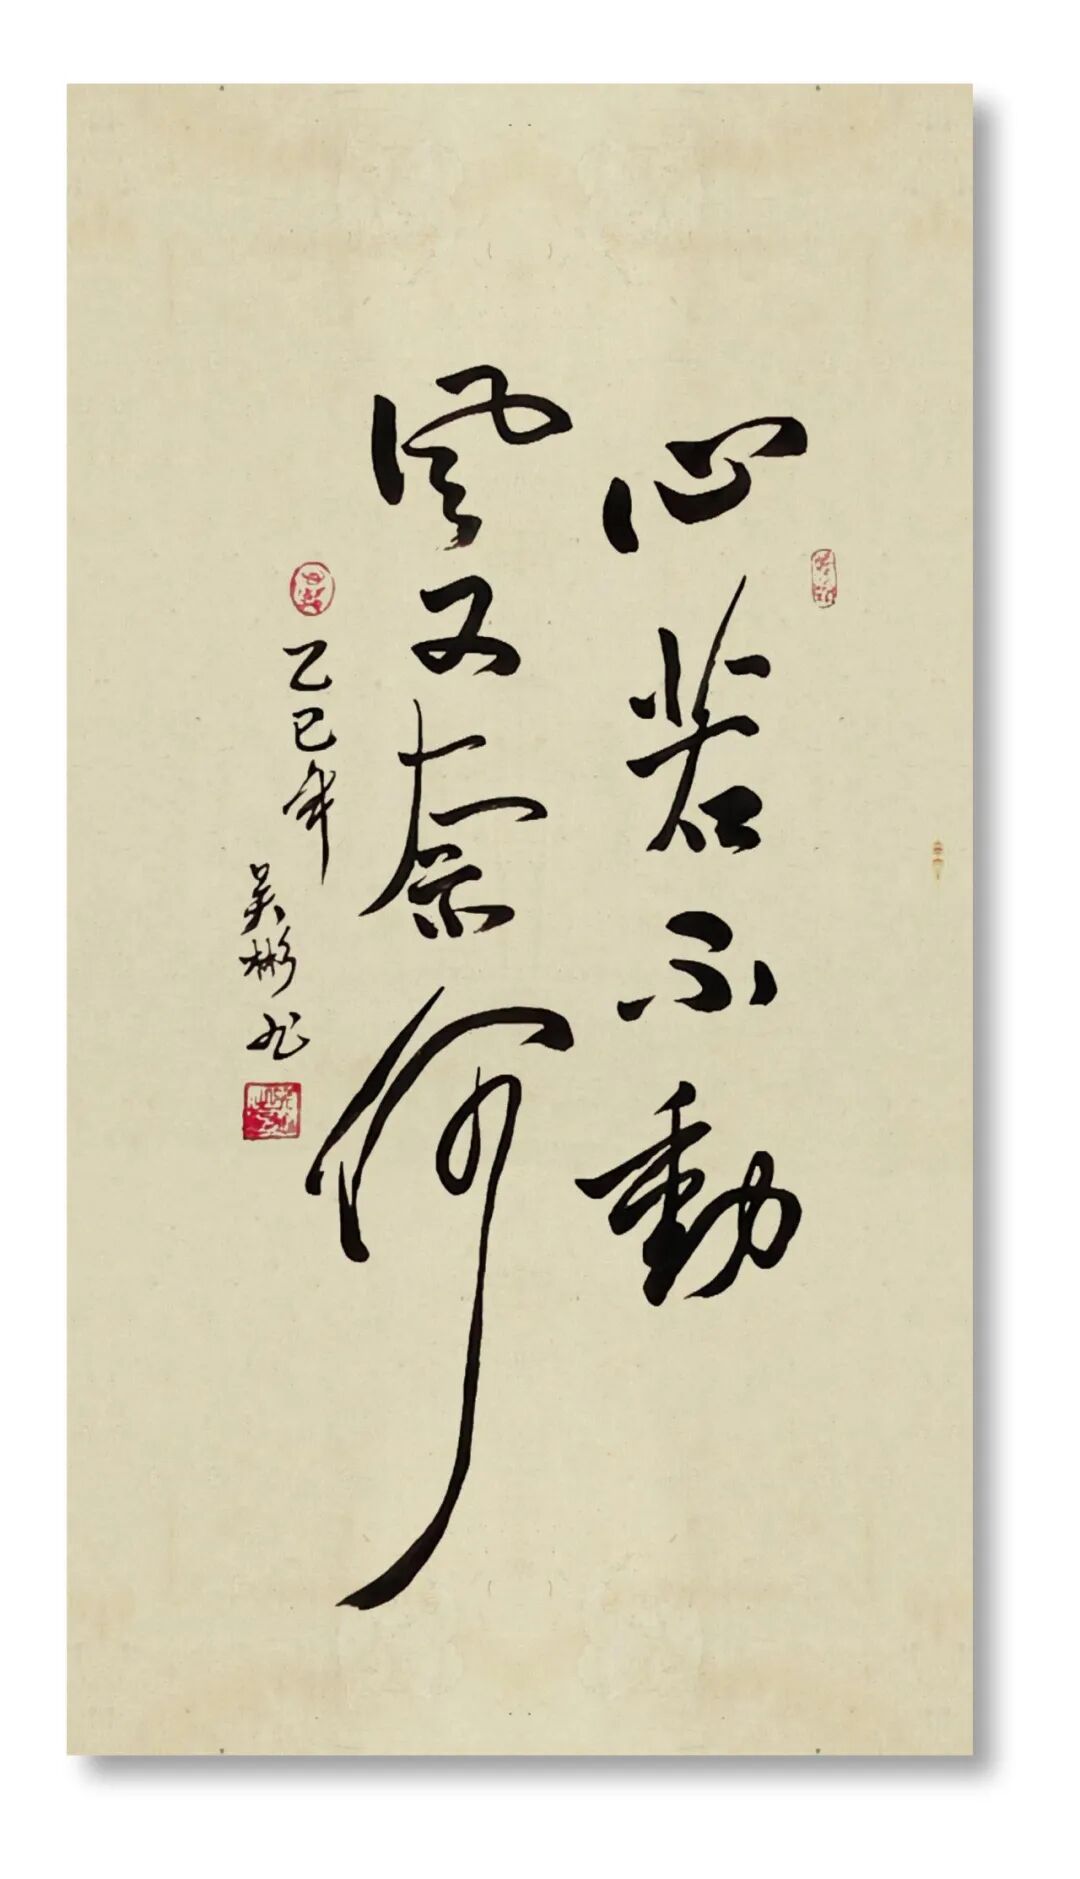 心若不動
風又奈何
乙巳年
吴彬书